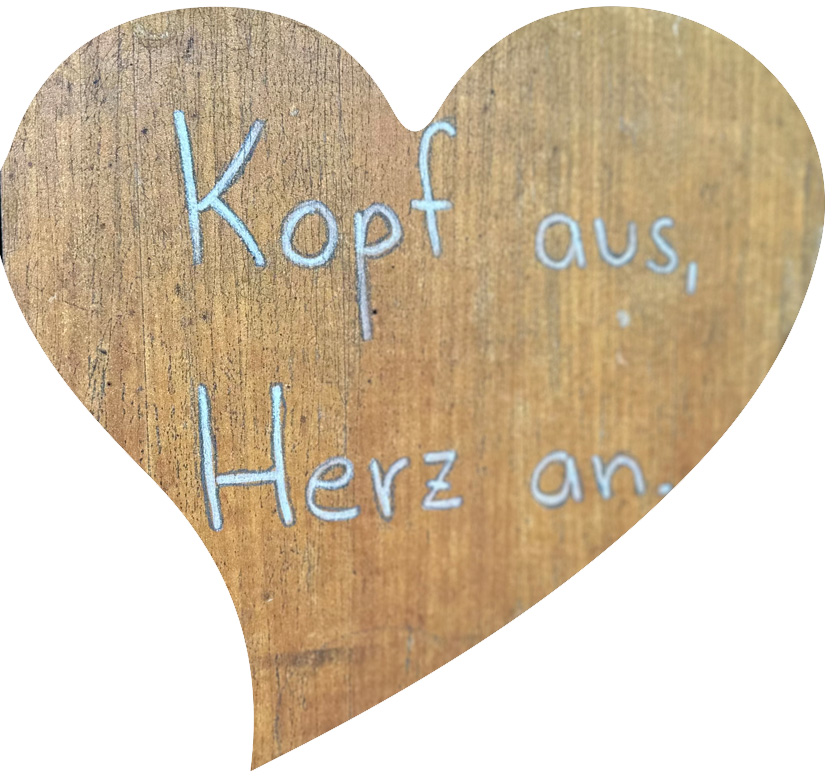 Kopf aus,
Herz an.